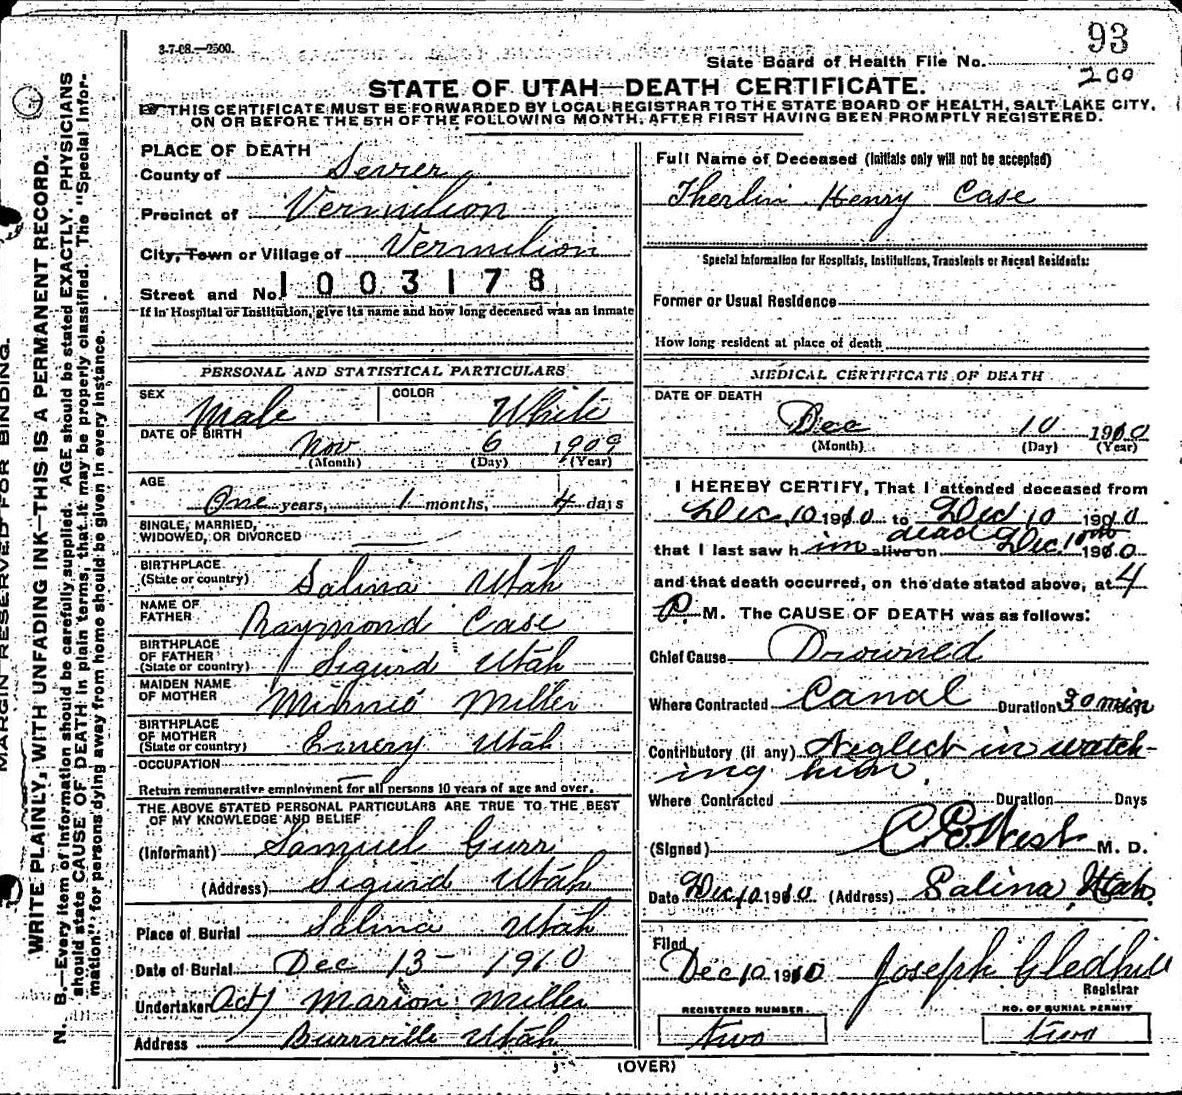 3-7-08.—2500.
93
State Board of Health File No.
200
STATE OF UTAH—DEATH CERTIFICATE.
THIS CERTIFICATE MUST BE FORWARDED BY LOCAL REGISTRAR TO THE STATE BOARD OF HEALTH, SALT LAKE CITY,
ON OR BEFORE THE 5TH OF THE FOLLOWING MONTH, AFTER FIRST HAVING BEEN PROMPTLY REGISTERED.
MARGIN RESERVED FOR BINDING.
WRITE PLAINLY, WITH UNFADING INK—THIS IS A PERMANENT RECORD.
N. B.—Every item of information should be carefully supplied. AGE should be stated EXACTLY. PHYSICIANS
should state CAUSE OF DEATH in plain terms, that it may be properly classified. The "Special Infor-
mation" for persons dying away from home should be given in every instance.
PLACE OF DEATH
County of Sevier
Precinct of Vermilion
City, Town or Village of Vermilion
Street and No. 1003178
If in Hospital or Institution, give its name and how long deceased was an inmate
PERSONAL AND STATISTICAL PARTICULARS
SEX Male COLOR White
DATE OF BIRTH Nov 6 1909
(Month) (Day) (Year)
AGE
One years, 1 months, 4 days
SINGLE, MARRIED,
WIDOWED, OR DIVORCED
BIRTHPLACE
(State or country) Salina Utah
NAME OF
FATHER Raymond Case
BIRTHPLACE
OF FATHER
(State or country) Sigurd Utah
MAIDEN NAME
OF MOTHER Minnie Miller
BIRTHPLACE
OF MOTHER
(State or country) Emery Utah
OCCUPATION
Return remunerative employment for all persons 10 years of age and over.
THE ABOVE STATED PERSONAL PARTICULARS ARE TRUE TO THE BEST
OF MY KNOWLEDGE AND BELIEF
(Informant) Samuel Gurr
(Address) Sigurd Utah
Place of Burial Salina Utah
Date of Burial Dec 13 - 1910
Undertaker (Act) Marion Miller
Address Burrville Utah
Full Name of Deceased (Initials only will not be accepted)
Therlin Henry Case
Special Information for Hospitals, Institutions, Transients or Recent Residents:
Former or Usual Residence
How long resident at place of death
MEDICAL CERTIFICATE OF DEATH
DATE OF DEATH
Dec 10 1910
(Month) (Day) (Year)
I HEREBY CERTIFY, That I attended deceased from
Dec, 10 1910 to Dec 10 1910
dead
that I last saw him alive on Dec. 10th 1910
and that death occurred, on the date stated above, at 4
P. M. The CAUSE OF DEATH was as follows:
Chief Cause Drowned
Where Contracted Canal Duration 30 min
Contributory (if any) Neglect in watch-
ing him.
Where Contracted Duration Days
(Signed) C. E. West M. D.
Date Dec 10 1910 (Address) Salina, Utah.
Filed
Dec 10 1910 Joseph Gledhill
Registrar
REGISTERED NUMBER NO. OF BURIAL PERMIT
two two
(OVER)